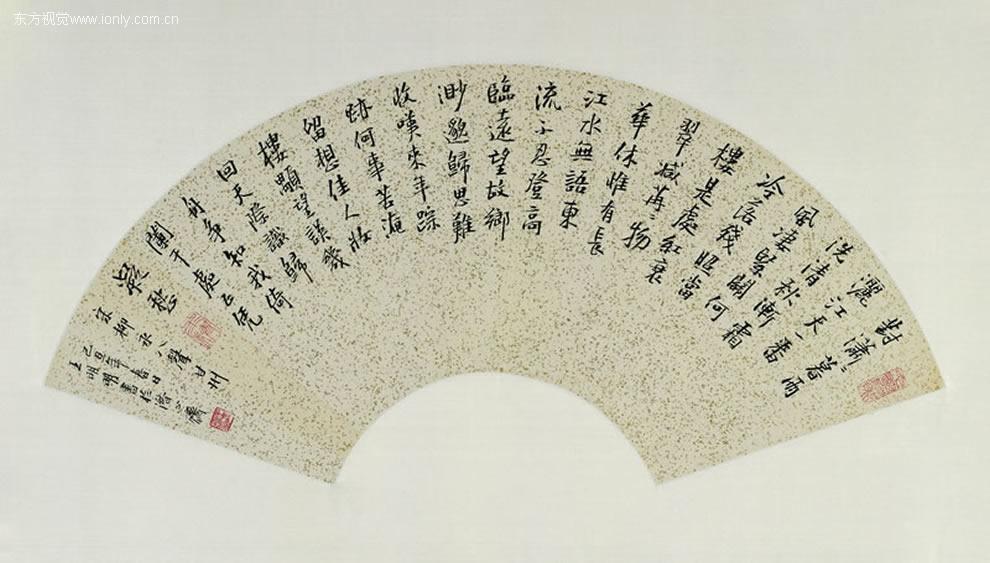 东方视觉www.ionly.com.cn
對瀟〻暮雨
灑江天一番
洗清秋漸霜
風凄緊關河
冷落殘照當
樓是處紅衰
翠減苒〻物
華休惟有長
江水無語東
流不忍登高
臨遠望故鄉
渺邈歸思難
收嘆來年踪
跡何事苦淹
留想佳人妝
樓顒望誤幾
回天際識歸
舟爭知我倚
闌干處正恁
凝愁
宋柳永八聲甘州
己丑年春日
王明明書於潛心齋